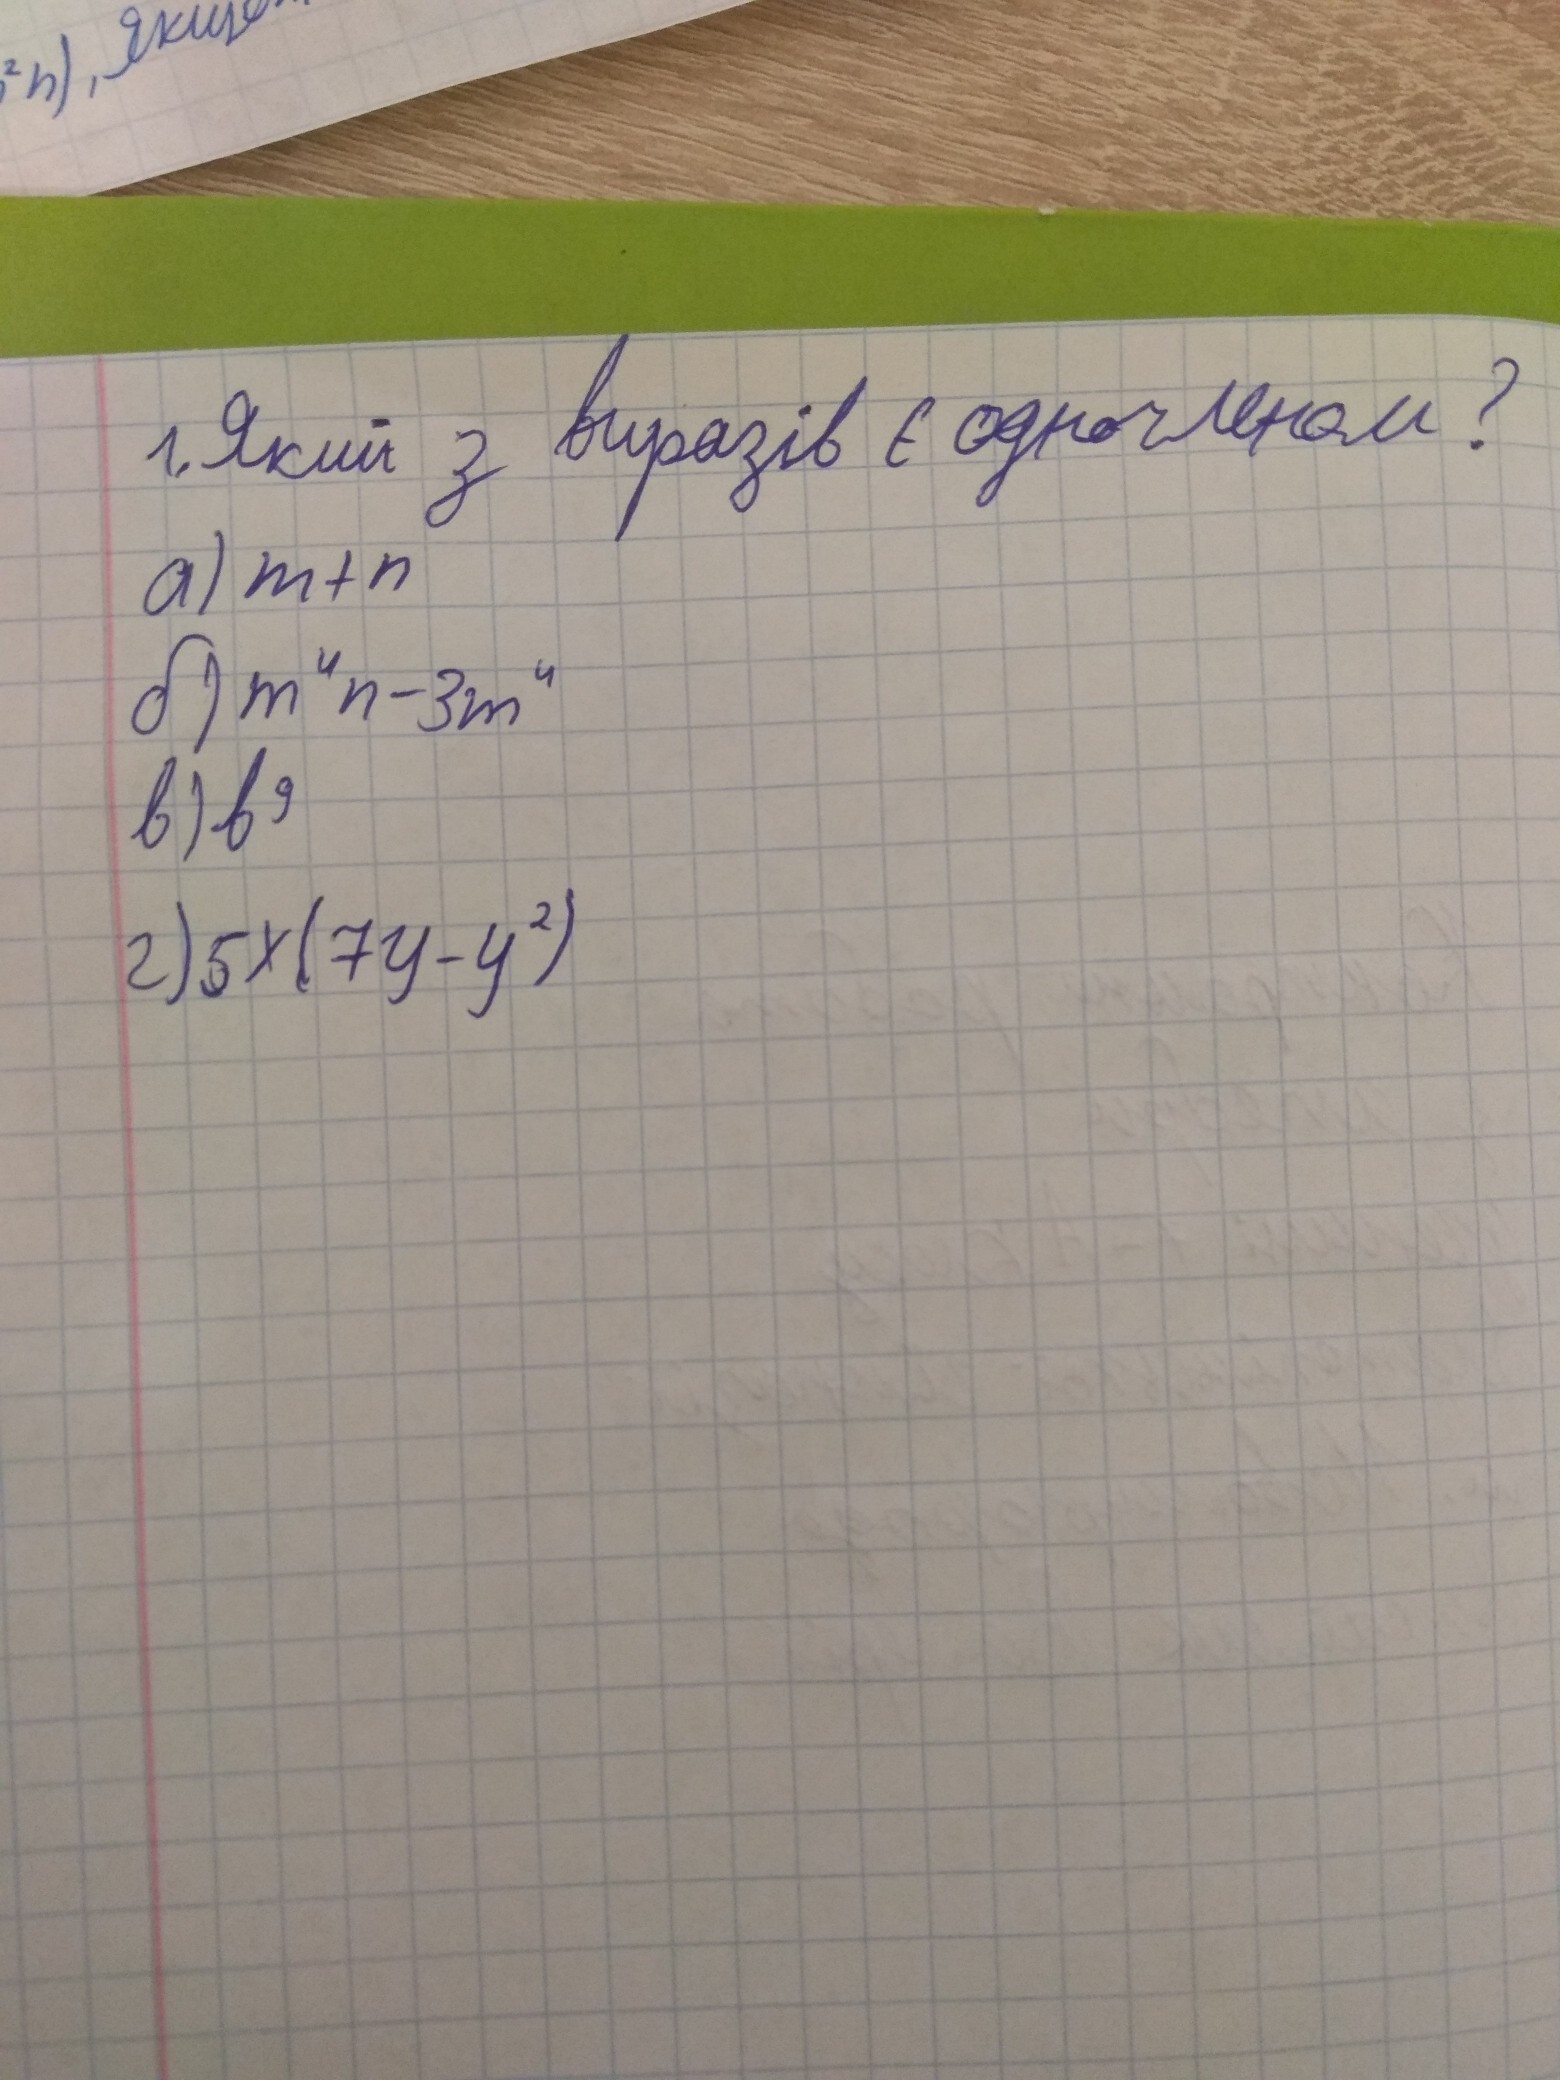 ²n), якщо
1. Який з виразів є одночленом?
а) m+n
б) m⁴n-3m⁴
в) b⁹
г) 5x(7y-y²)